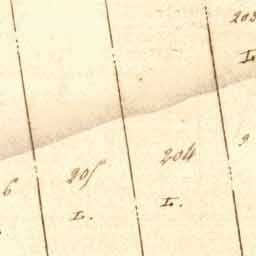 203
L.
204
L.
205
L.
6